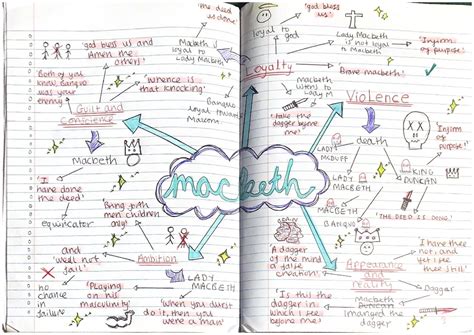 the deed
is done'
'god bless us and Amen
the others'
Macbeth
loyal to
Lady Macbeth
'Both of you
know, Banquo
was your
enemy'
'Whence is
that knocking'
Banquo
loyal towards
Guilt and
Conscience
Macbeth
'I
have done
the deed'
equivocator
Bring forth
men children
only'
and
'we'll not
fail'
Ambition
LADY
MACBETH
no
chance
in
failure
'Playing
on his
masculinity'
'When you durst
do it, then you
were a man'
macbeth
'god bless
us'
loyal to
god
Lady Macbeth
is not loyal
to Macbeth
'Infirm
of purpose'
Loyalty
'Brave macbeth'
Macbeth
loyal
to Lady M
Violence
'take the
dagger
before me'
death
'Infirm
of
purpose!'
LADY
MCDUFF
LADY
MACBETH
KING
DUNCAN
'THE DEED IS DONE'
'A dagger
of the mind
a false
creation'
Appearance
and
reality
'I have thee
not, and
yet I see
thee still'
'Is this the
dagger in
which I see
before me'
Macbeth
dagger